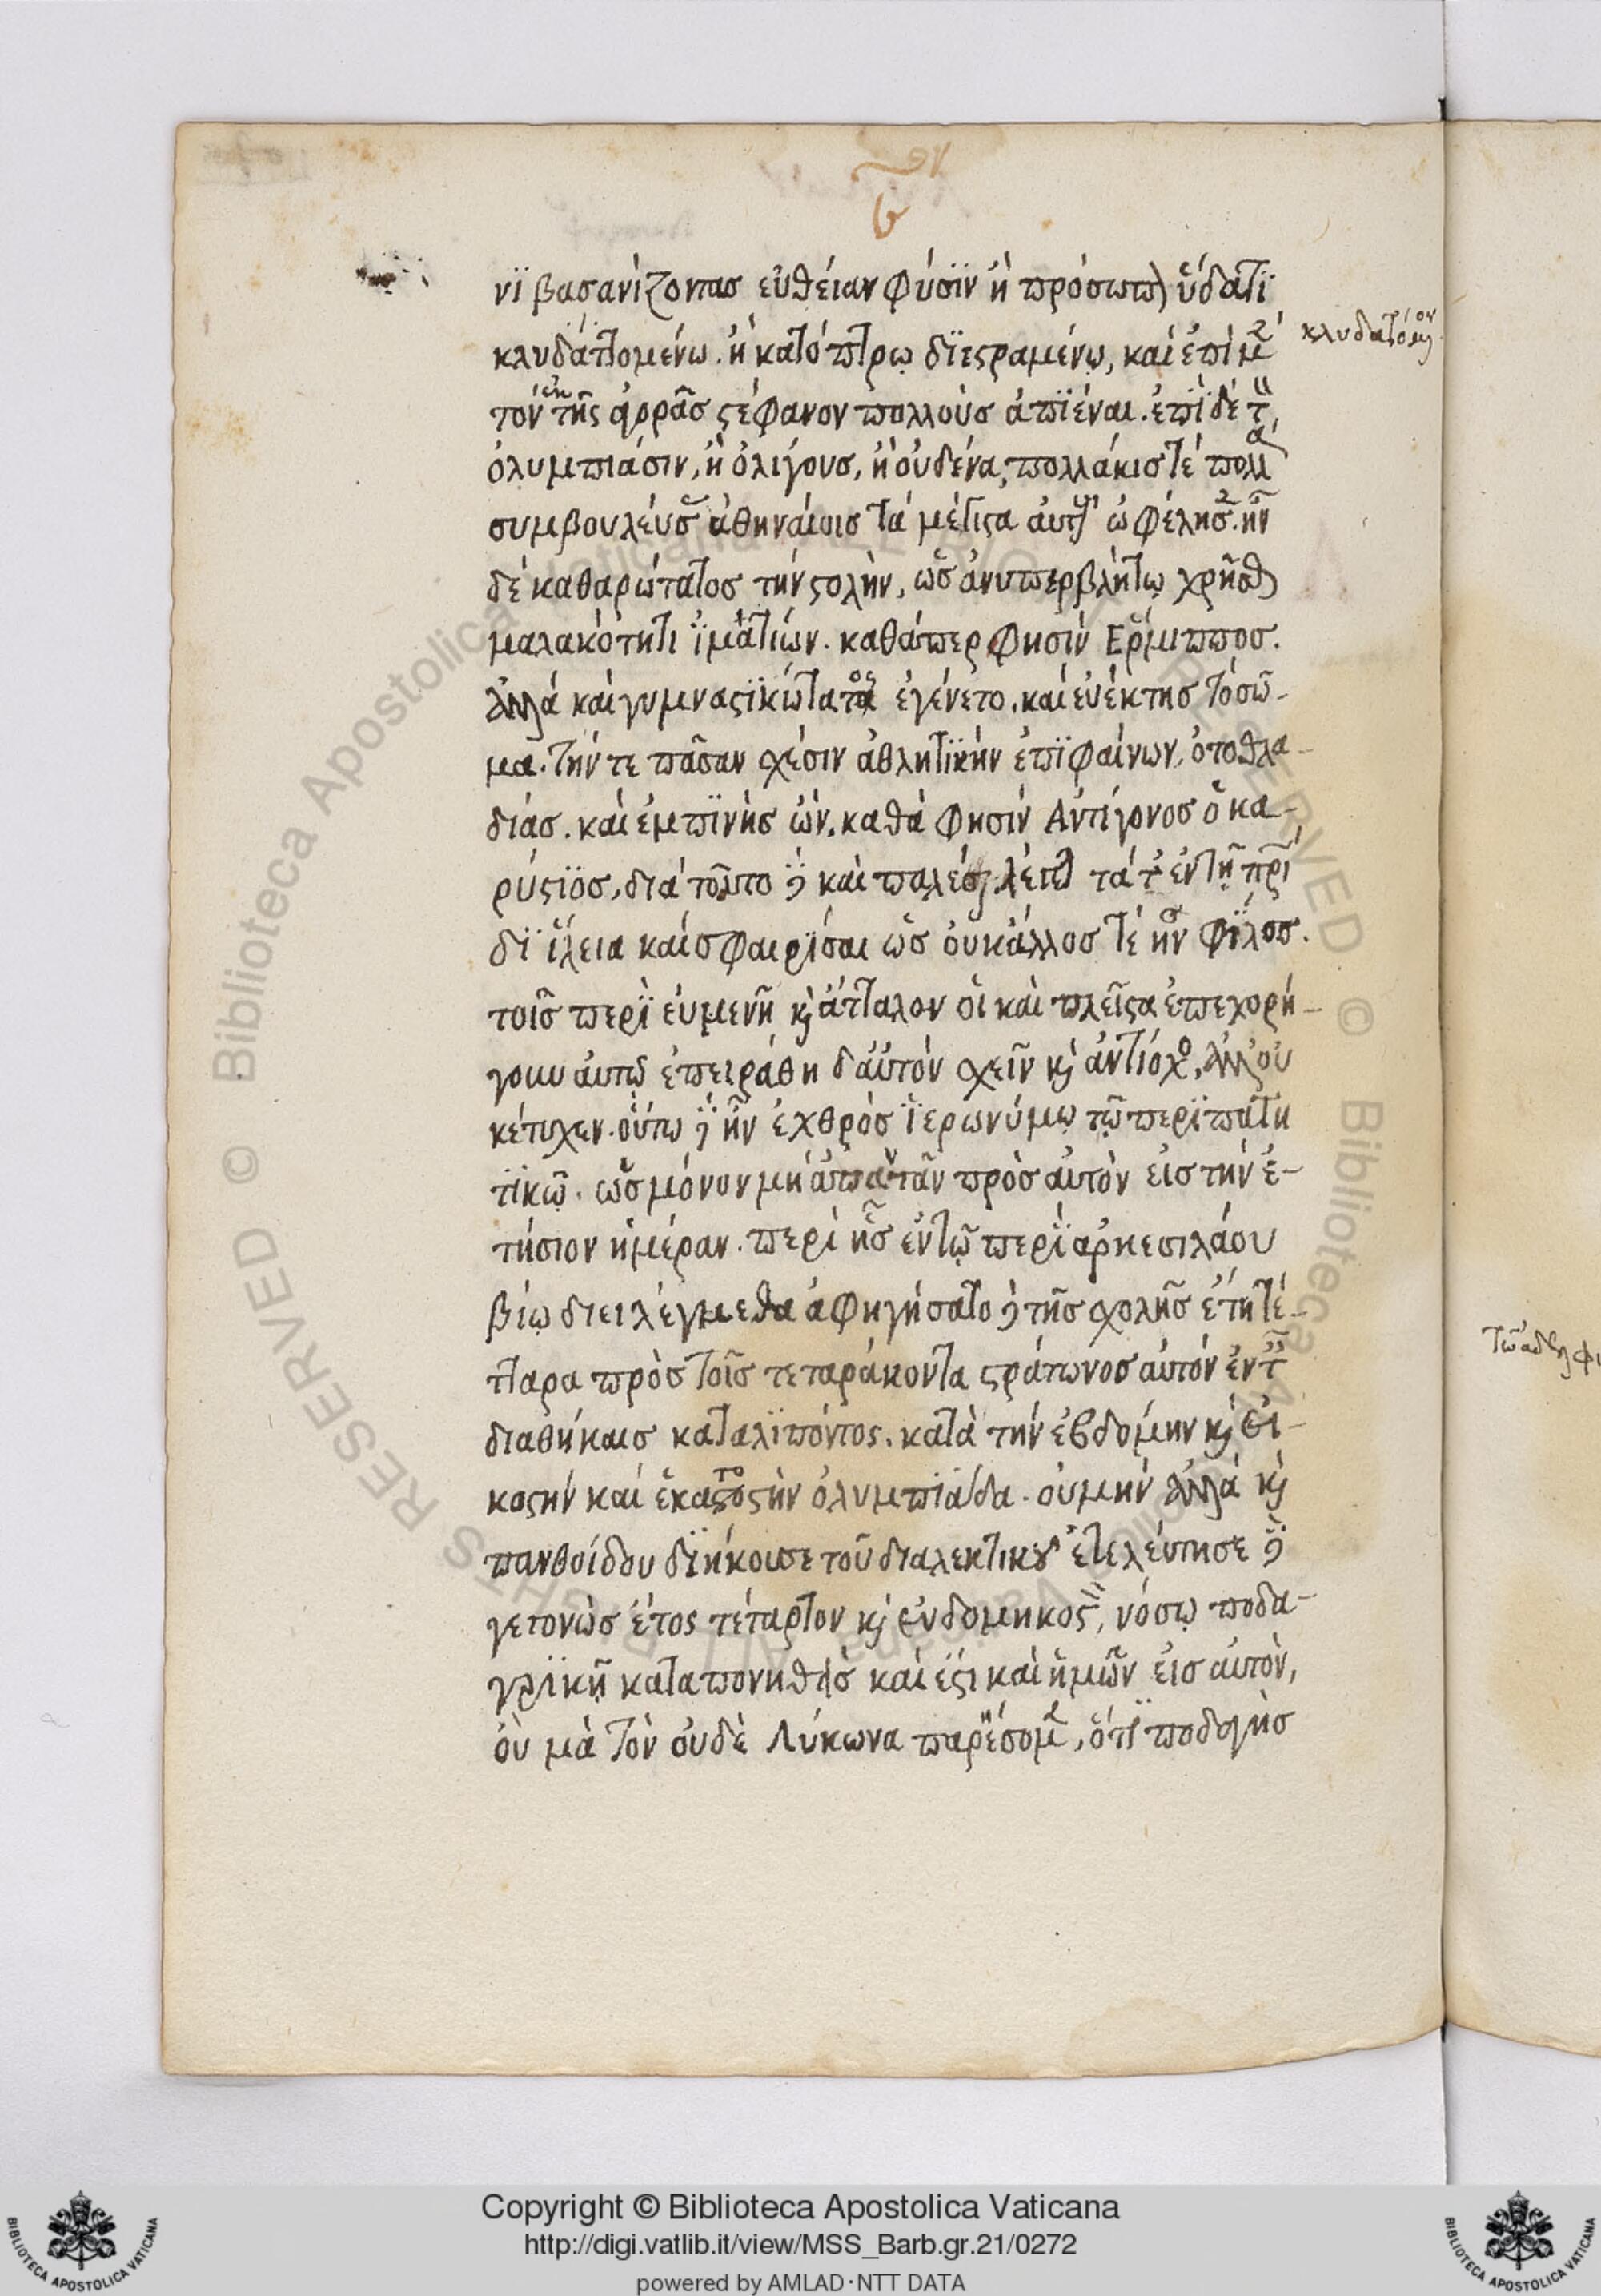 νϊ βασανίζοντας εὐθεῖαν φύσϊν ἢ πρόσωπον ὕδατϊ
κλυδαττομένω. ἢ κατόπτρῳ διεστραμένῳ, καὶ ἐπὶ μὲν
κλυδαττόμενον
τὸν ἐκ τῆς ἀγορᾶς στέφανον πολλοὺς ἀπϊέναι. ἐπὶ δὲ τὸν
ὀλυμπιάσιν, ἢ ὀλίγους, ἢ οὐδένα, πολλάκις τὲ πολλὰ
συμβουλεύσας ἀθηναίοις τὰ μέγιστα αὐτοὺς ὠφέλησεν. ἦν
δὲ καθαρώτατος τὴν στολὴν, ὡς ἀνυπερβλήτῳ χρῆσθαι
μαλακότητι ϊματίων. καθάπερ φησὶν Ερμιππος.
ἀλλὰ καὶ γυμναστϊκώτατος ἐγένετο. καὶ εὐέκτης τὸ σῶ-
μα. τήν τε πᾶσαν σχέσιν ἀθλητϊκὴν ἐπϊφαίνων, ὀτοθλα-
δίας. καὶ ἐμπϊνὴς ὢν, καθά φησὶν Αντίγονος ὁ κα-
ρύστϊος, διὰ τοῦτο δὲ καὶ παλαῖσαι λέγεται τά τ' ἐν τῇ πατρί
δϊ ἵλεια καὶ σφαιρίσαι ὡς οὐκ ἄλλος τὲ ἦν φίλος.
τοῖς περὶ εὐμενῆ καὶ ἄτταλον οἱ καὶ πλεῖστα ἐπεχορή-
γουν αὐτῷ ἐπειράθη δ' αὐτὸν σχεῖν καὶ ἀντίοχος, ἀλλ' οὐ
κέτυχεν. οὕτω δὲ ἦν ἐχθρὸς ϊερωνύμῳ τῷ περϊπατη
τϊκῷ. ὡς μόνον μὴ ἀπαντᾶν πρὸς αὐτὸν εἰς τὴν ἐ-
τήσιον ἡμέραν. περὶ ἧς ἐν τῷ περὶ αρκεσιλάου
βίῳ διειλέγμεθα ἀφηγήσατο δὲ τῆς σχολῆς ἔτη τέ-
τταρα πρὸς τοῖς τεταράκοντα στράτωνος αὐτὸν ἐν ταῖς
διαθήκαις καταλϊπόντος. κατὰ τὴν ἑβδόμην καὶ εἰ-
κοστὴν καὶ ἑκατοστὴν ὀλυμπϊάδα. οὐ μὴν ἀλλὰ καὶ
πανθοίδου διήκουσε τοῦ διαλεκτικοῦ ἐτελεύτησε δὲ
γεγονὼς ἔτος τέταρτον καὶ ἑνδομηκοστὸν, νόσῳ ποδα-
γρϊκῇ καταπονηθείς καὶ ἔστι καὶ ἡμῶν εἰς αὐτὸν,
οὐ μὰ τὸν οὐδὲ Λύκωνα παρήσομεν, ὅτϊ ποδαγὴς